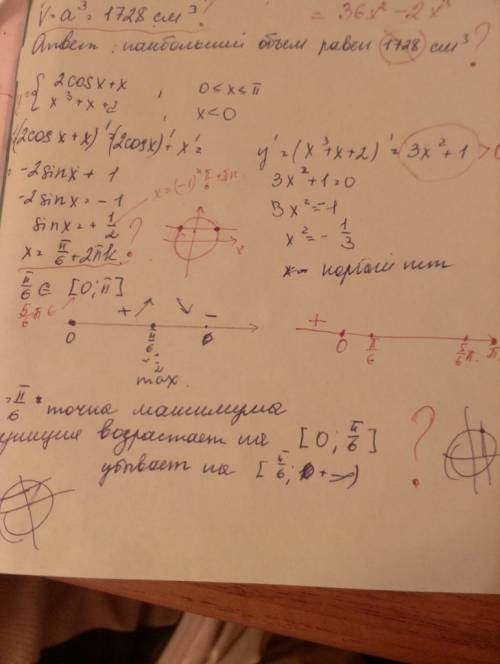 V = a³ = 1728 см³ ?
= 36x² - 2x³
Ответ: наибольший объем равен 1728 см³ ?
{ 2cosx + x , 0 ≤ x ≤ π
x³ + x + 2 , x < 0
(2cosx + x)' = (2cosx)' + x' =
= -2sinx + 1
-2sinx = -1
sinx = + 1/2
x = π/6 + 2πk. ?
π/6 ∈ [0; π]
5/6 π ∈
y' = (x³ + x + 2)' = 3x² + 1 > 0
3x² + 1 = 0
3x² = -1
x² = - 1/3
x - корней нет
0 + π/6 -
max
+ 0 π/6 5/6 π π
π/6 - точка максимума
функция возрастает на [0; π/6] ?
убывает на